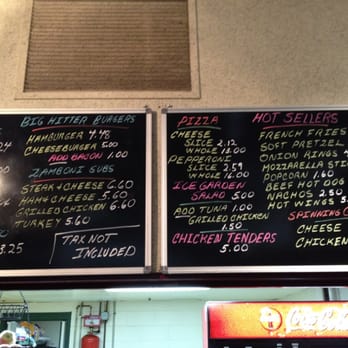 24
3.25
BIG HITTER BURGERS
HAMBURGER 4.48
CHEESEBURGER 5.00
ADD BACON 1.00
ZAMBONI SUBS
STEAK & CHEESE 6.60
HAM & CHEESE 5.60
GRILLED CHICKEN 6.60
TURKEY 5.60
TAX NOT
INCLUDED
PIZZA
CHEESE
SLICE 2.12
WHOLE 13.00
PEPPERONI
SLICE 2.59
WHOLE 16.00
ICE GARDEN
SALAD 5.00
ADD TUNA 1.00
GRILLED CHICKEN
1.50
CHICKEN TENDERS
5.00
HOT SELLERS
FRENCH FRIES
SOFT PRETZEL
ONION RINGS
MOZZARELLA STI
POPCORN 1.60
BEEF HOT DOG
NACHOS 2.50
HOT WINGS 5
SPINNING
CHEESE
CHICKEN